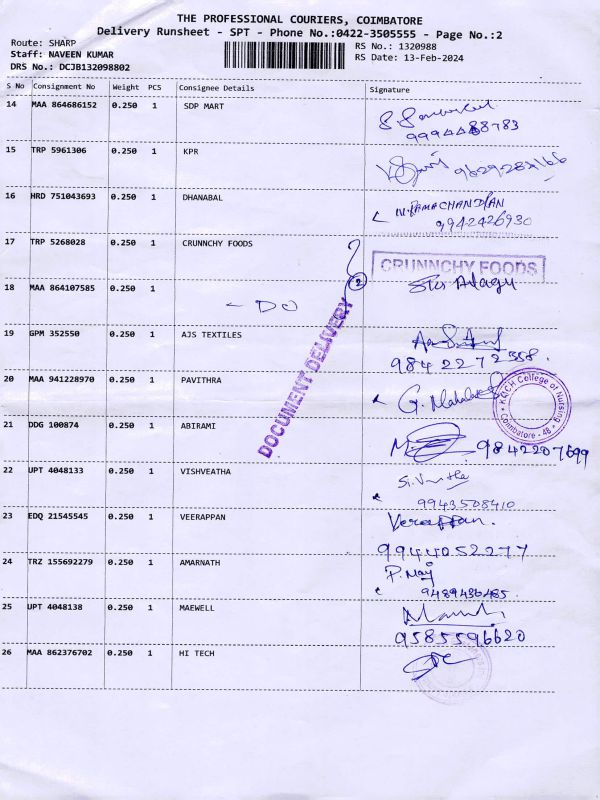 THE PROFESSIONAL COURIERS, COIMBATORE
Delivery Runsheet - SPT - Phone No.:0422-3505555 - Page No.:2
Route: SHARP
Staff: NAVEEN KUMAR
DRS No.: DCJB132098802
RS No.: 1320988
RS Date: 13-Feb-2024
S No Consignment No Weight PCS Consignee Details Signature
14 MAA 864686152 0.250 1 SDP MART
9994488783
15 TRP 5961306 0.250 1 KPR
16 HRD 751043693 0.250 1 DHANABAL N.RAMACHANDRAN
9942426930
17 TRP 5268028 0.250 1 CRUNNCHY FOODS CRUNNCHY FOODS
18 MAA 864107585 0.250 1 - DO 2
DOCUMENT DELIVERY
19 GPM 352550 0.250 1 AJS TEXTILES
9842272358.
20 MAA 941228970 0.250 1 PAVITHRA
College of Nursing
Coimbatore - 48
21 DDG 100874 0.250 1 ABIRAMI 9842207699
22 UPT 4048133 0.250 1 VISHVEATHA
9943508410
23 EDQ 21545545 0.250 1 VEERAPPAN Veerappan.
9944052277
24 TRZ 155692279 0.250 1 AMARNATH
9489436485.
25 UPT 4048138 0.250 1 MAEWELL
9585596620
26 MAA 862376702 0.250 1 HI TECH